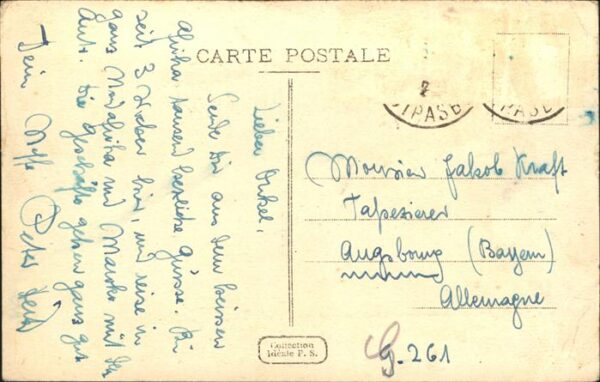 CARTE POSTALE
Lieber Onkel,
Sende dir aus dem heissen
Afrika tausend herzliche Grüsse. Bin
seit 3 Wochen hier, und reise in
ganz Nordafrika und Marokko mit des
Auto. Die Geschäfte gehen ganz gut
Dein Neffe Peter
Monsieur Jakob Kraft
Tapezierer
Augsbourg (Bayern)
Allemagne
G. 261
Collection
Idéale P. S.